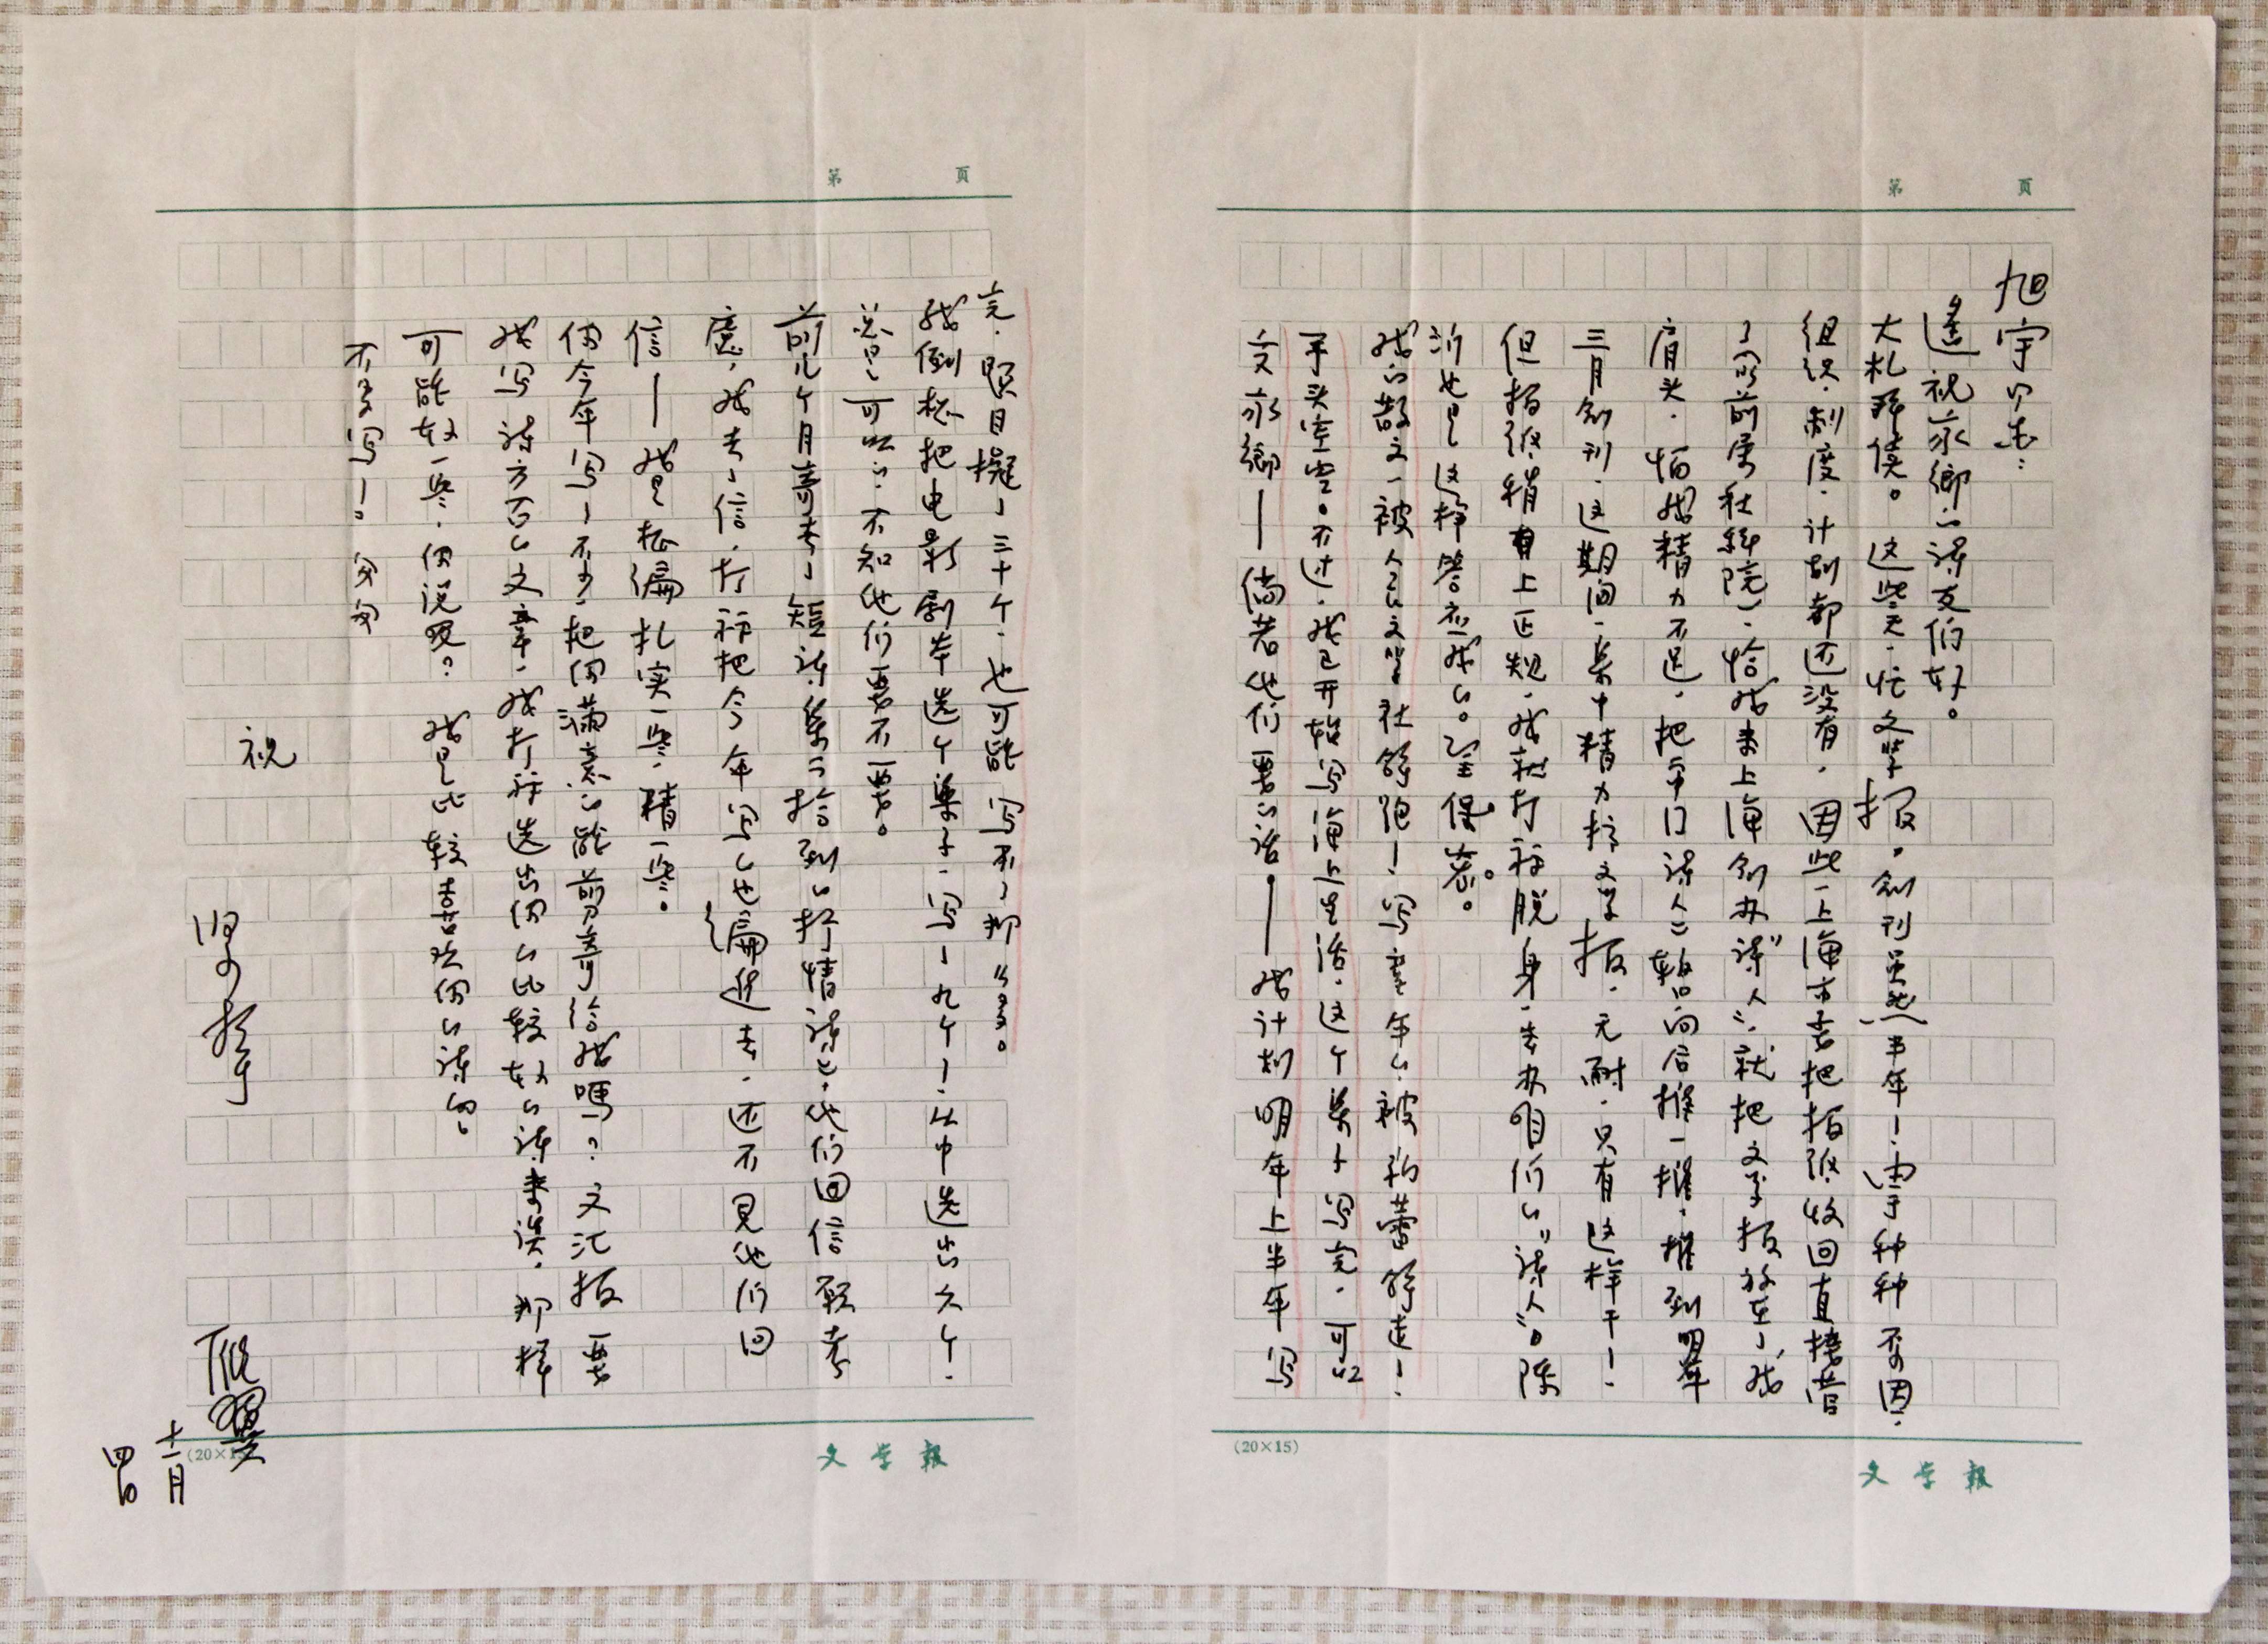 第 页
旭宇同志：
遥祝京乡的诗友们好。
大札拜读。这些天，忙文学报，创刊虽然半年！由于种种原因，
组织、制度、计划都还没有，因此，上海市委把报纸收回直接管
了（以前属社科院），恰我来上海创办“诗人”，就把文学报放在了我
肩头，怕我精力不足，把专门诗人暂向后推一推，推到明年
三月创刊，这期间，集中精力搞文学报，无耐，只有这样干！
但报纸稍有上正规，我就打谱脱身，去办咱们的“诗人”。陈
沂也是这样答应我的。望保密。
我的散文，被人民文学社给跑！写童年的，被新蕾给走！
手头空空。不过，我已开始写海上生活，这个集子写完，可以
交京乡——倘若他们要的话。——我计划明年上半年写
(20×15)
文学报
第 页
完，题目拟了三十个，也可能写不了那么多。
我倒想把电影剧本选个集子，写了九个！从中选出六个！
总是可以的？不知他们要不要。
前几个月寄去了短诗集《拾到的抒情诗》，他们回信，我考
虑，我去了信，打谱把今年写的也编进去，还不见他们回
信——我是想编扎实一些，精一些。
你今年写了不少，把你满意的能剪寄给我吗？文汇报要
我写诗方面的文章，我打谱选出你的比较好的诗来谈，那样
可能好一些，你说呢？我是比较喜欢你的诗的。
不多写了。匆匆
祝
紧握手
雁翼
十一月
四日
文学报